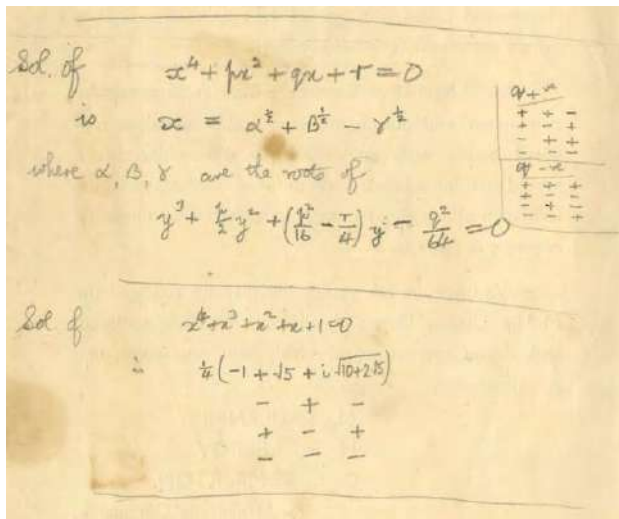 Sol. of x⁴ + px² + qx + r = 0
is x = α^½ + β^½ - γ^½
where α, β, γ are the roots of
y³ + p/2 y² + (p²/16 - r/4) y - q²/64 = 0
q + ve
+ + -
- + +
- - -
q - ve
+ + +
+ - -
- + -
- - +
Sol of x⁴+x³+x²+x+1=0
is ¼(-1 + √5 + i√10+2√5)
- + -
+ - +
- - -